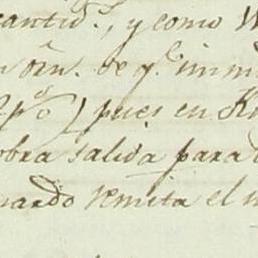 cantid.ˢ, y como
orn. de q.ᵉ inm
pues en
obra salida para
uardo remita el